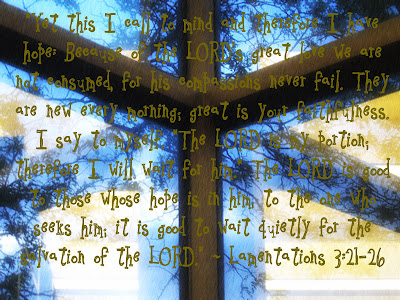 "Yet this I call to mind and therefore I have
hope: Because of the LORD's great love we are
not consumed, for his compassions never fail. They
are new every morning; great is your faithfulness.
I say to myself, "The LORD is my portion;
therefore I will wait for him." The LORD is good
to those whose hope is in him, to the one who
seeks him; it is good to wait quietly for the
salvation of the LORD." ~ Lamentations 3:21-26